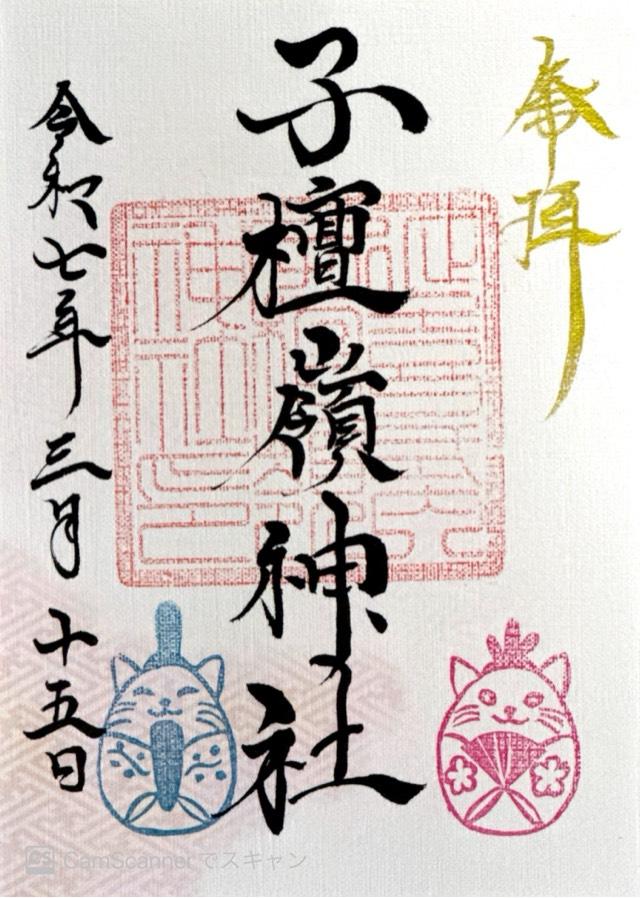 奉拝
子檀嶺神社
令和七年三月十五日
CS CamScanner でスキャン